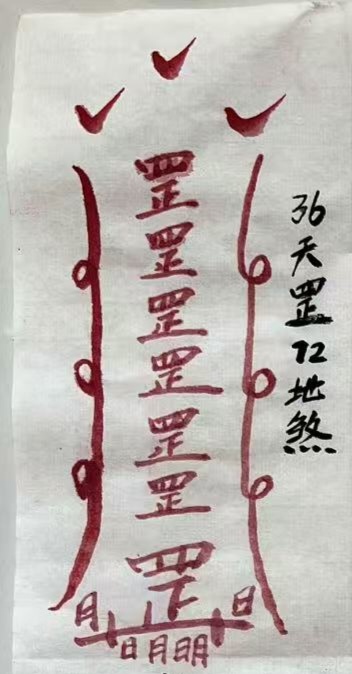 罡罡罡罡罡罡罡
月 日
日月明
36天罡72地煞